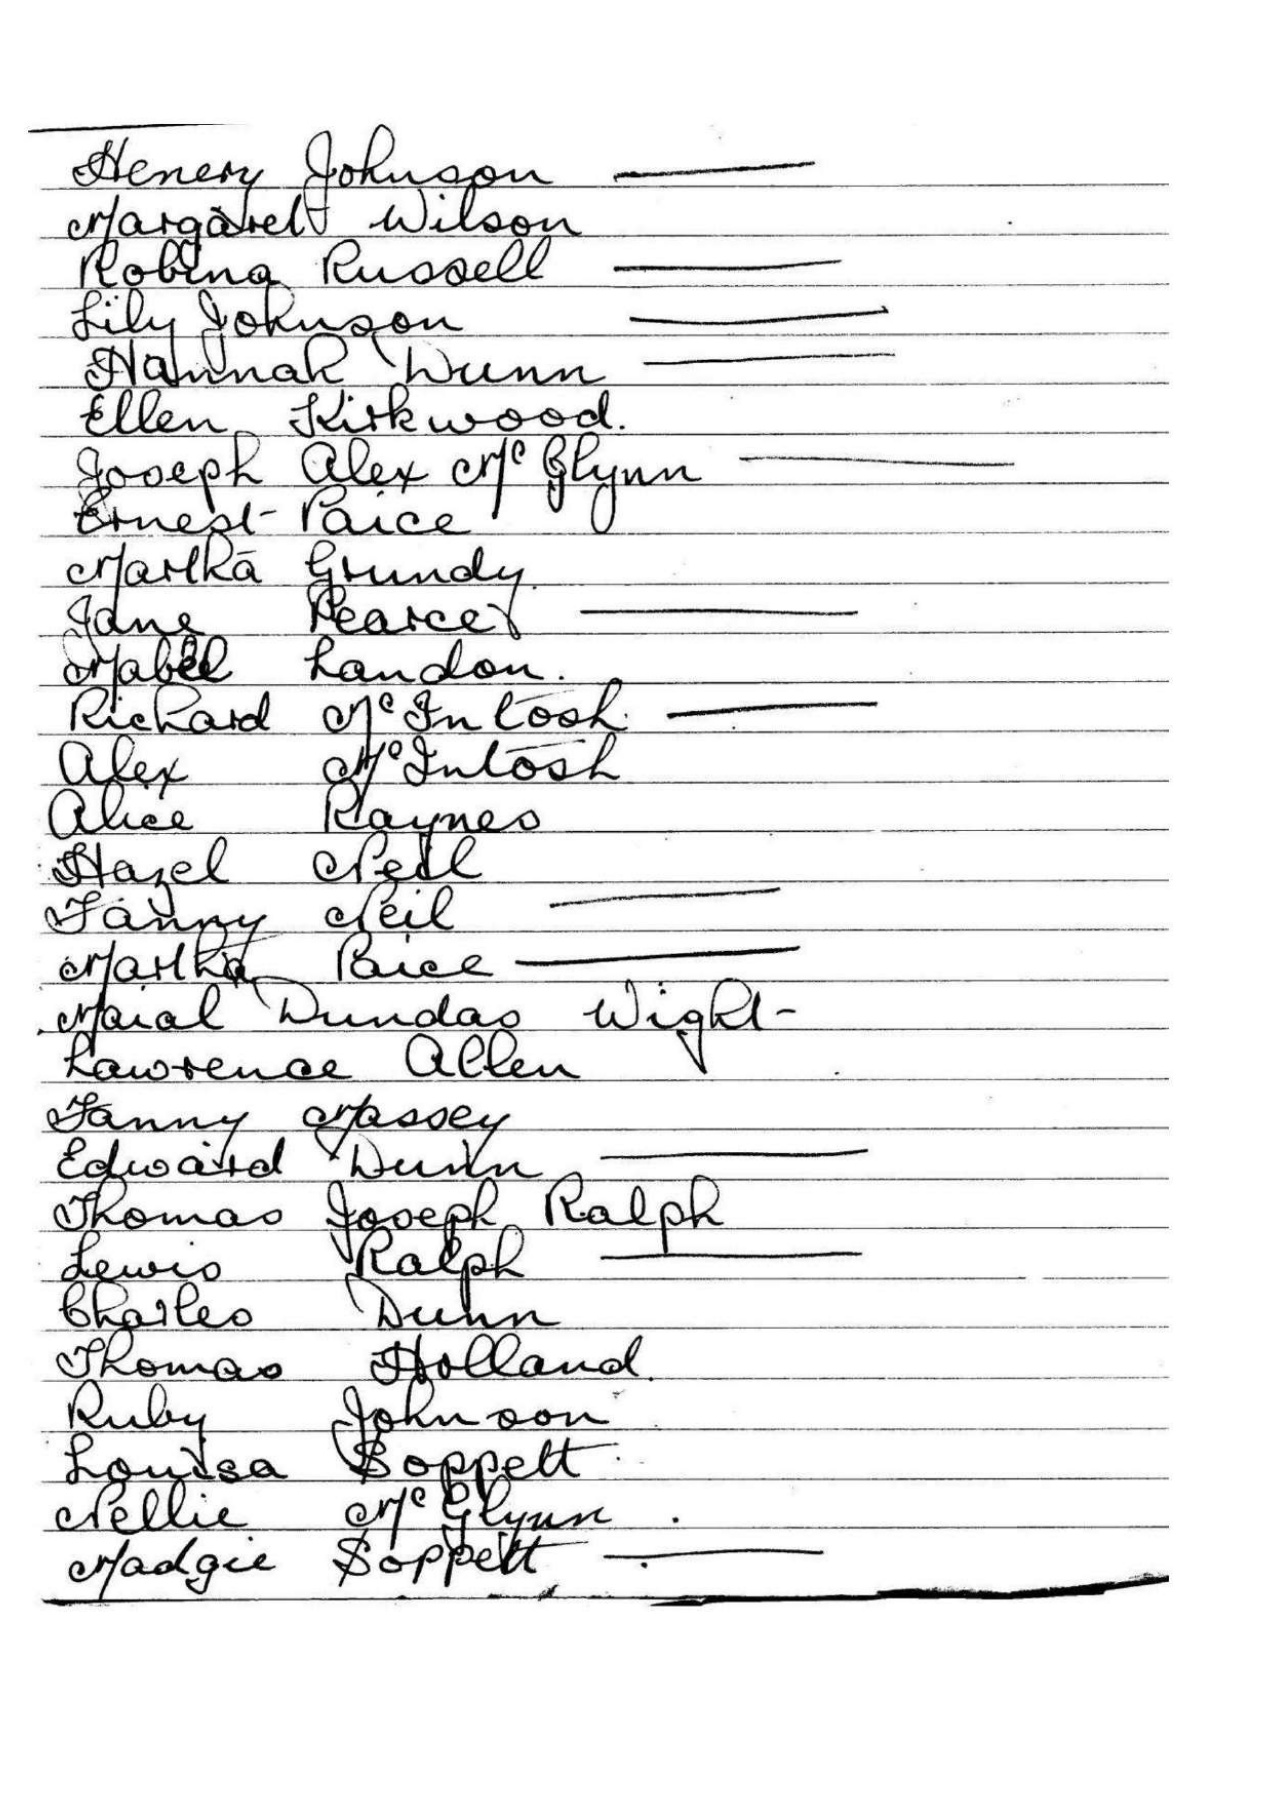 Henery Johnson
Margaret Wilson
Robina Russell
Lily Johnson
Hannah Dunn
Ellen Kirkwood.
Joseph Alex Mc Glynn
Ernest Paice
Martha Grundy
Jane Pearce
Mabel Landon.
Richard McIntosh
Alex McIntosh
Alice Raynes
Hazel Neil
Fanny Neil
Martha Paice
Maial Dundas Wight
Lawrence Allen
Fanny Massey
Edward Dunn
Thomas Joseph Ralph
Lewis Ralph
Charles Dunn
Thomas Holland.
Ruby Johnson
Louisa Soppett
Nellie Mc Glynn
Madgie Soppett